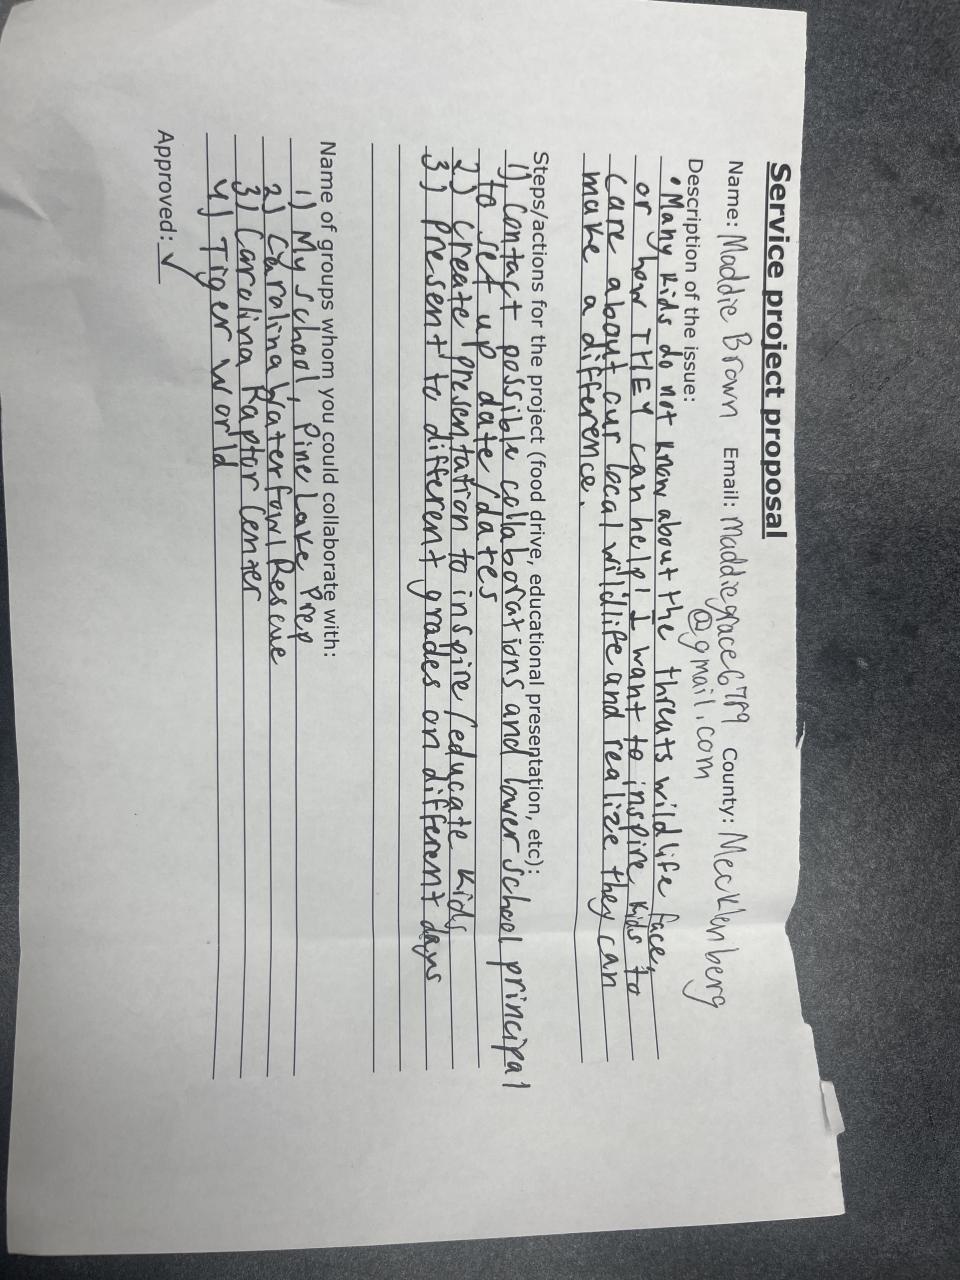 Service project proposal
Name: Maddie Brown Email: maddiegrace6789 County: Mecklenberg
@gmail.com
Description of the issue:
• Many kids do not know about the threats wildlife face,
or how THEY can help! I want to inspire kids to
care about our local wildlife and realize they can
make a difference.
Steps/actions for the project (food drive, educational presentation, etc):
1) Contact possible collaborations and lower school principal
to set up date/dates
2) create presentation to inspire/educate kids
3) present to different grades on different days
Name of groups whom you could collaborate with:
1) My school, Pine Lake Prep
2) Carolina Waterfowl Rescue
3) Carolina Raptor Center
4) Tiger World
Approved: ✓